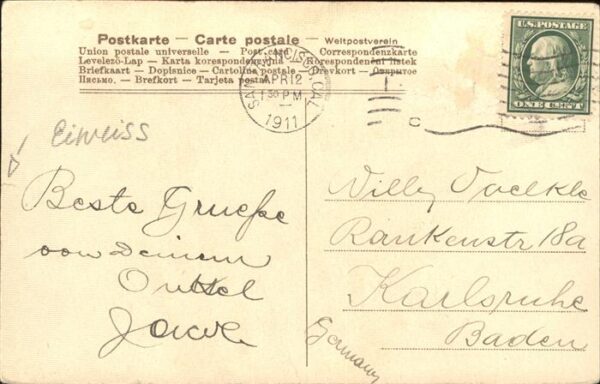 Postkarte – Carte postale – Weltpostverein
Union postale universelle – Post card – Correspondenzkarte
Levelező-Lap – Karta korespondencyjna – Korespondenční listek
Briefkaart – Dopisnice – Cartolina postale – Brevkort – Открытое
Письмо. – Brefkort – Tarjeta postal
SAN FRANCISCO, CAL.
APR 12
1 30 PM
1911
U.S. POSTAGE
ONE CENT
Eiweiss
Beste Gruesse
von Deinem
Onkel
Willy Voelkle
Rankenstr 18a
Karlsruhe
Baden
Germany